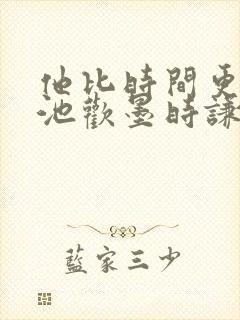 他比時間更
池歡墨時謙
藍家三少